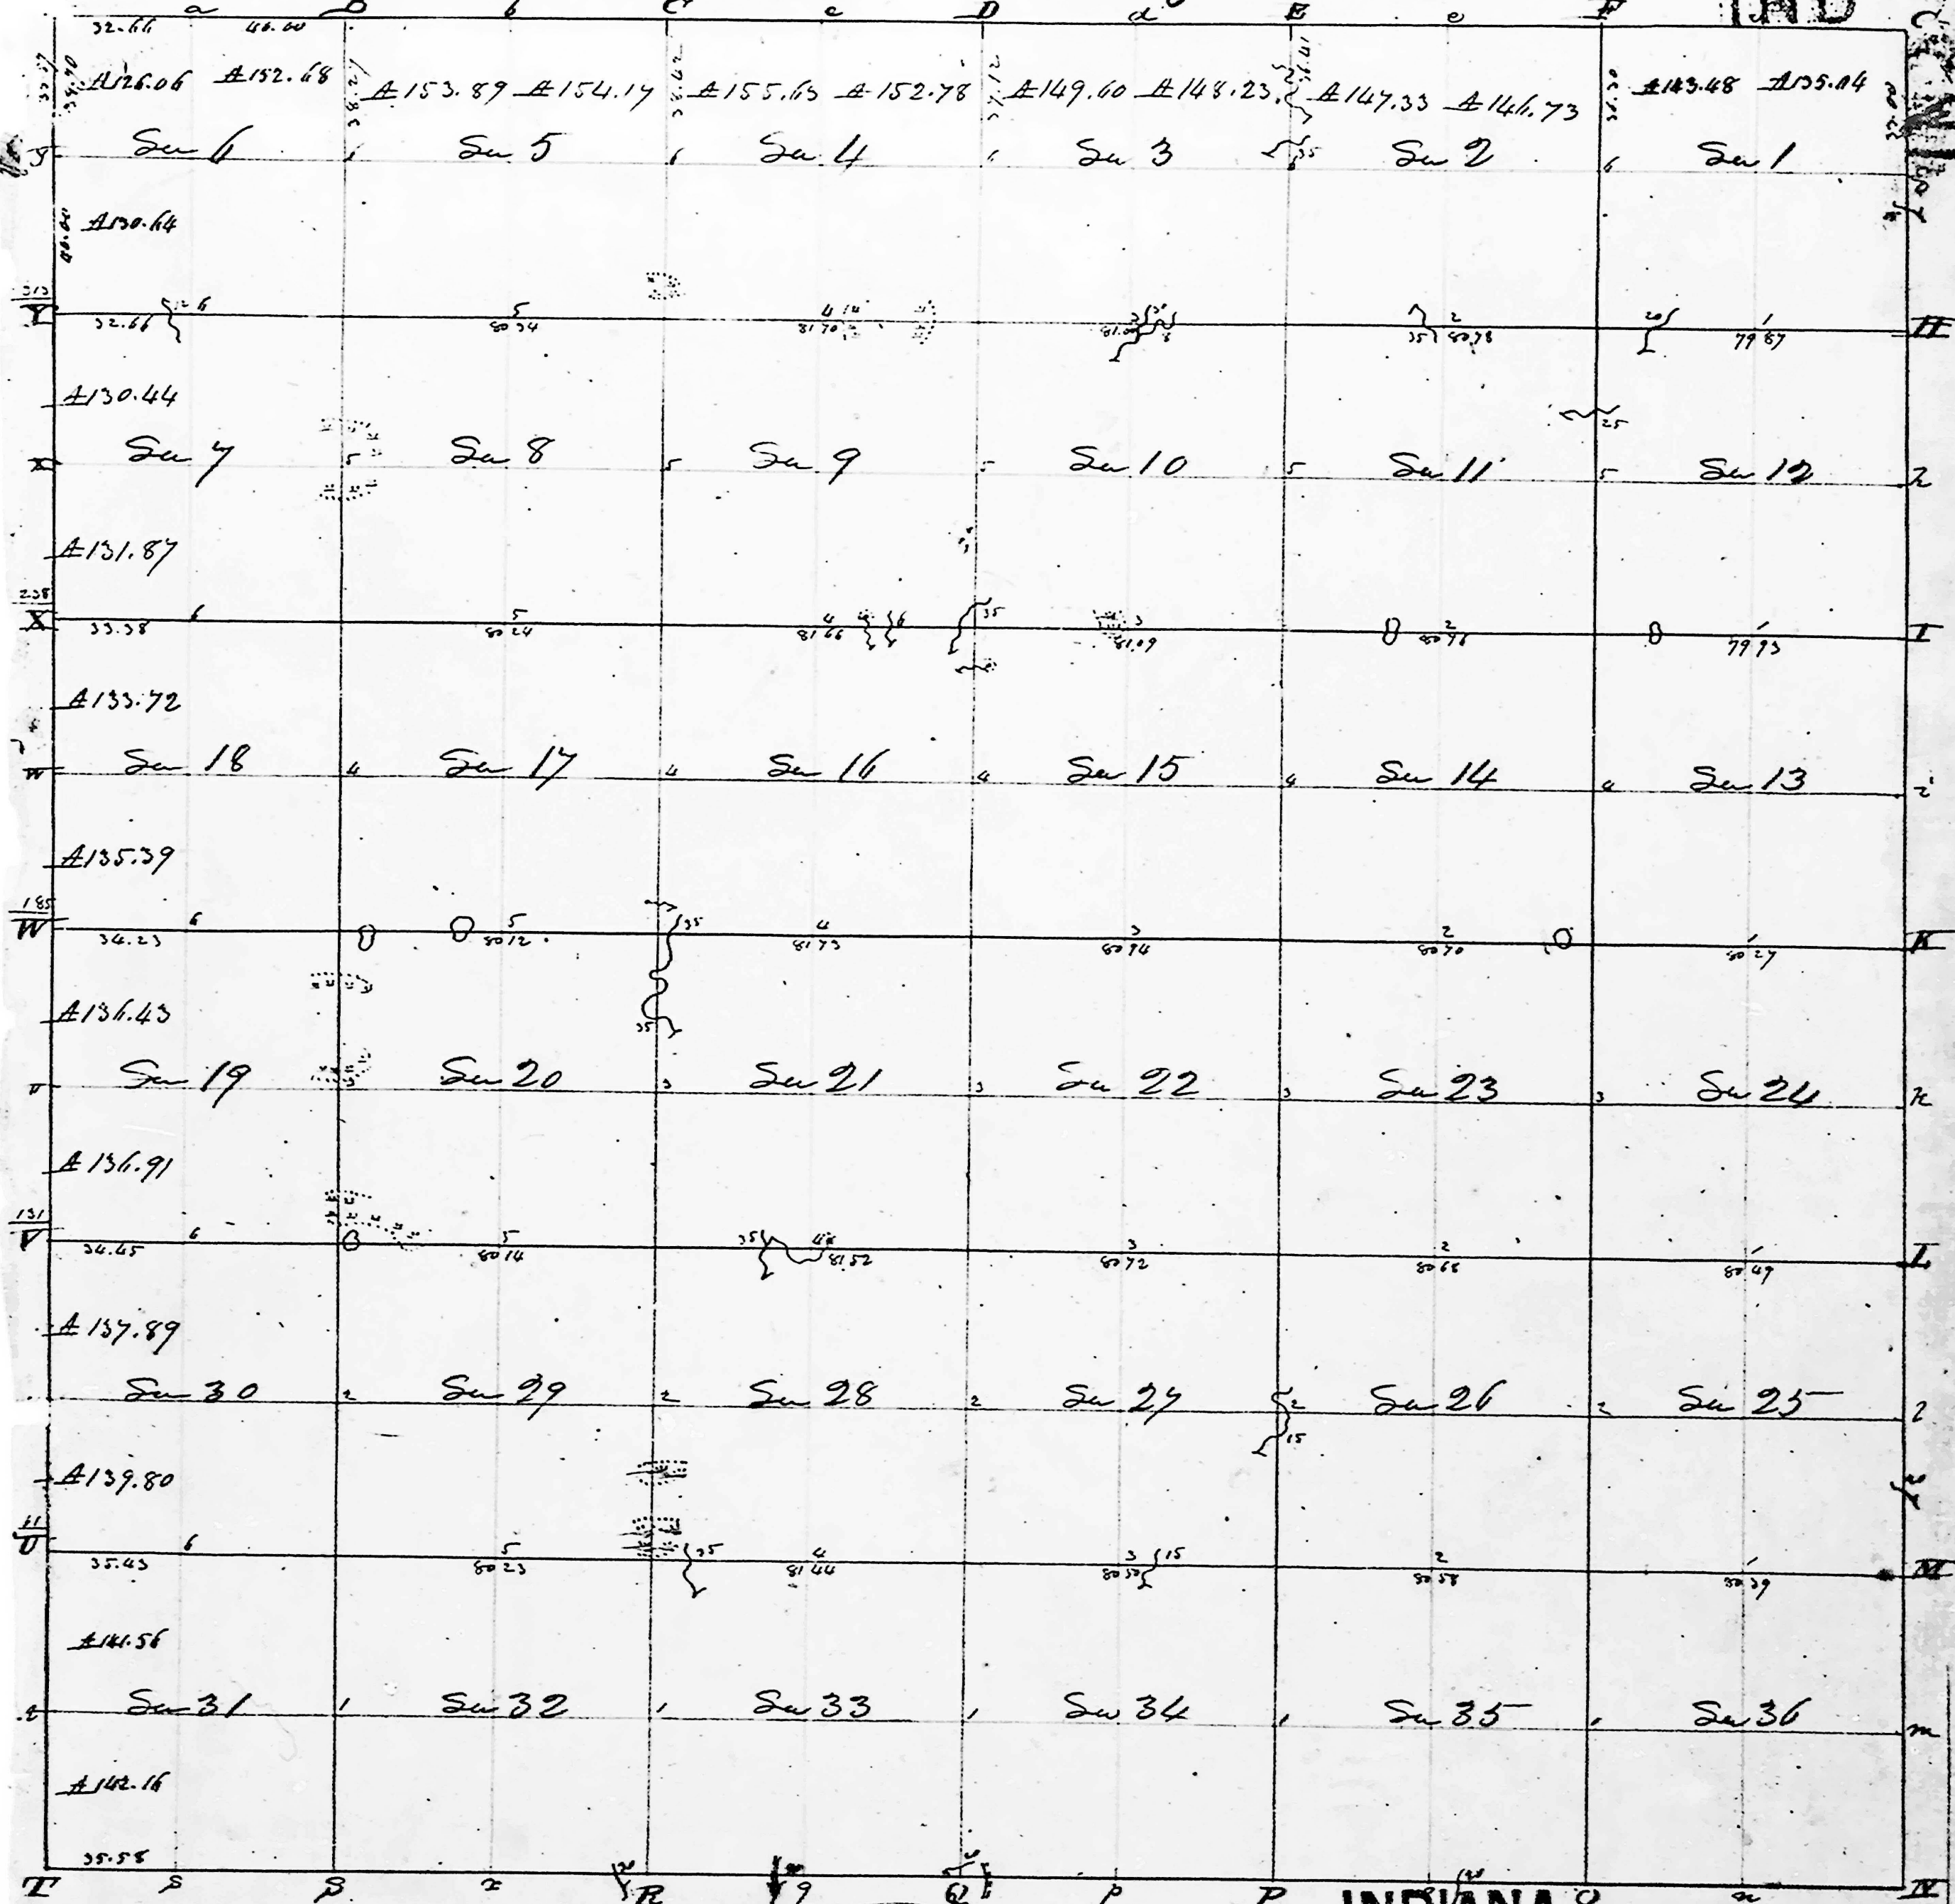 a b C c D d E e F IND
32.66 40.00
A126.06 A152.68 A153.89 A154.17 A155.63 A152.78 A149.60 A148.23 A147.33 A146.73 A143.48 A135.04
Sec 6 Sec 5 Sec 4 Sec 3 Sec 2 Sec 1
6 6 6 6
40.00 A130.64
Y 32.66 6 5 80 34 4 81 70 35 2 80 78 20 1 79 87 H
A130.44
25
x Sec 7 5 Sec 8 5 Sec 9 5 Sec 10 5 Sec 11 5 Sec 12 h
A131.87
238
X 33.38 6 5 80 24 4 81 66 35 3 81.09 2 80 96 1 79 93 I
A133.72
w Sec 18 4 Sec 17 4 Sec 16 4 Sec 15 4 Sec 14 4 Sec 13 i
A135.39
185
W 34.23 6 5 80 12 35 4 81 73 3 80 94 2 80 70 1 80 27 K
A136.43
35
v Sec 19 3 Sec 20 3 Sec 21 3 Sec 22 3 Sec 23 3 Sec 24 k
A136.91
131
V 34.45 6 5 80 14 35 4 81.52 3 80 72 2 80 68 1 80 49 L
A137.89
Sec 30 2 Sec 29 2 Sec 28 2 Sec 27 2 Sec 26 2 Sec 25 l
15
A139.80
U 35.43 6 5 80 23 35 4 81 44 3 80 50 15 2 80 58 1 80 39 M
A141.56
t Sec 31 1 Sec 32 1 Sec 33 1 Sec 34 1 Sec 35 1 Sec 36 m
A142.16
35.58
T R q p P O n N
INDIANA